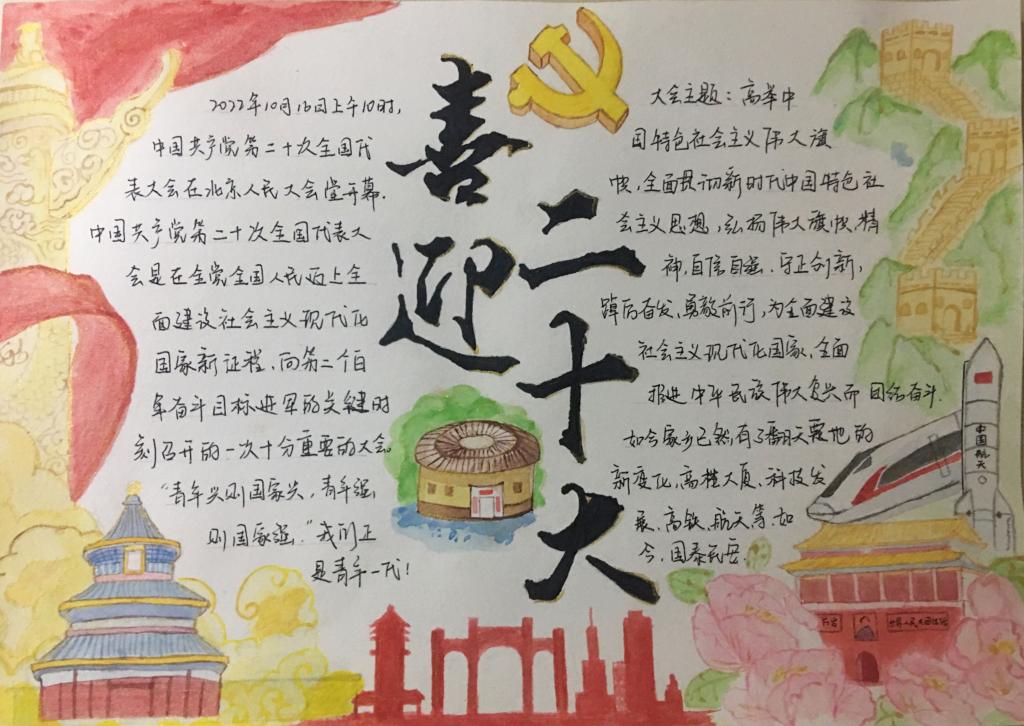 喜迎
二十大
2022年10月16日上午10时,
中国共产党第二十次全国代
表大会在北京人民大会堂开幕.
中国共产党第二十次全国代表大
会是在全党全国人民迈上全
面建设社会主义现代化
国家新征程,向第二个百
年奋斗目标进军的关键时
刻召开的一次十分重要的大会。
“青年兴则国家兴,青年强
则国家强.”我们正
是青年一代!
大会主题:高举中
国特色社会主义伟大旗
帜,全面贯彻新时代中国特色社
会主义思想,弘扬伟大建党精
神,自信自强、守正创新,
踔厉奋发、勇毅前行,为全面建设
社会主义现代化国家、全面
推进中华民族伟大复兴而团结奋斗.
如今家乡已然有了翻天覆地的
新变化,高楼大厦、科技发
展、高铁、航天等.如
今,国泰民安.
中国航天